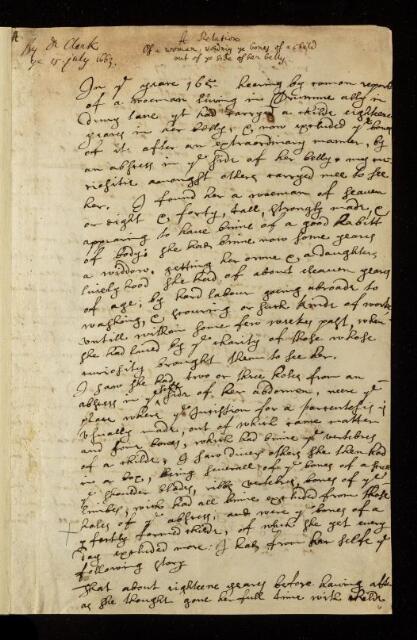 By Dr Clerk
ye 15 July 1663.
A Relation
Of a woman, voiding ye bones of a child
out of ye side of her belly.
In ye yeare 165 hearing by comon report
of a woeman living in ally in
Drury lane yt had carryd a childe eighteene
yeares in her belly, & now excluded ye bones
of it after an extraordinary manner, by
an abscess in ye side of her belly, my cu-
riositie amongst others carryed mee to see
her. I found her a woeman of seaven
or eight & forty, tall, strongly made, &
appearing to have binne of a good habitt
of body: she had binne now some yeares
a widdow, getting her owne & a daughters
livelyhood she had of about eleaven yeares
of age, by hard labour going abroade to
washing, & scowring or such kinde of worke,
untill within some few weekes past, when
she had lived by ye charity of those whose
curiosity brought them to see her.
I saw she had two or three holes from an
abscess in ye side of her abdomen, neere ye
place where ye incision for a parcentesis is
usually made, out of which came matter
and some bones, which had binne ye vertebres
of a childe; I saw divers others she then had
in a box, being severall of ye bones of a
ye shoulder blades, ribbs, vertebres, bones of ye
limbes, wch had all binne excluded from those
holes of ye abscess, and were ye bones of a
p fectly formd childe, of which she yet every
day excluded more. I had from her selfe ye
following story
That about eighteene yeares before having
as she thought gone her full time with childe